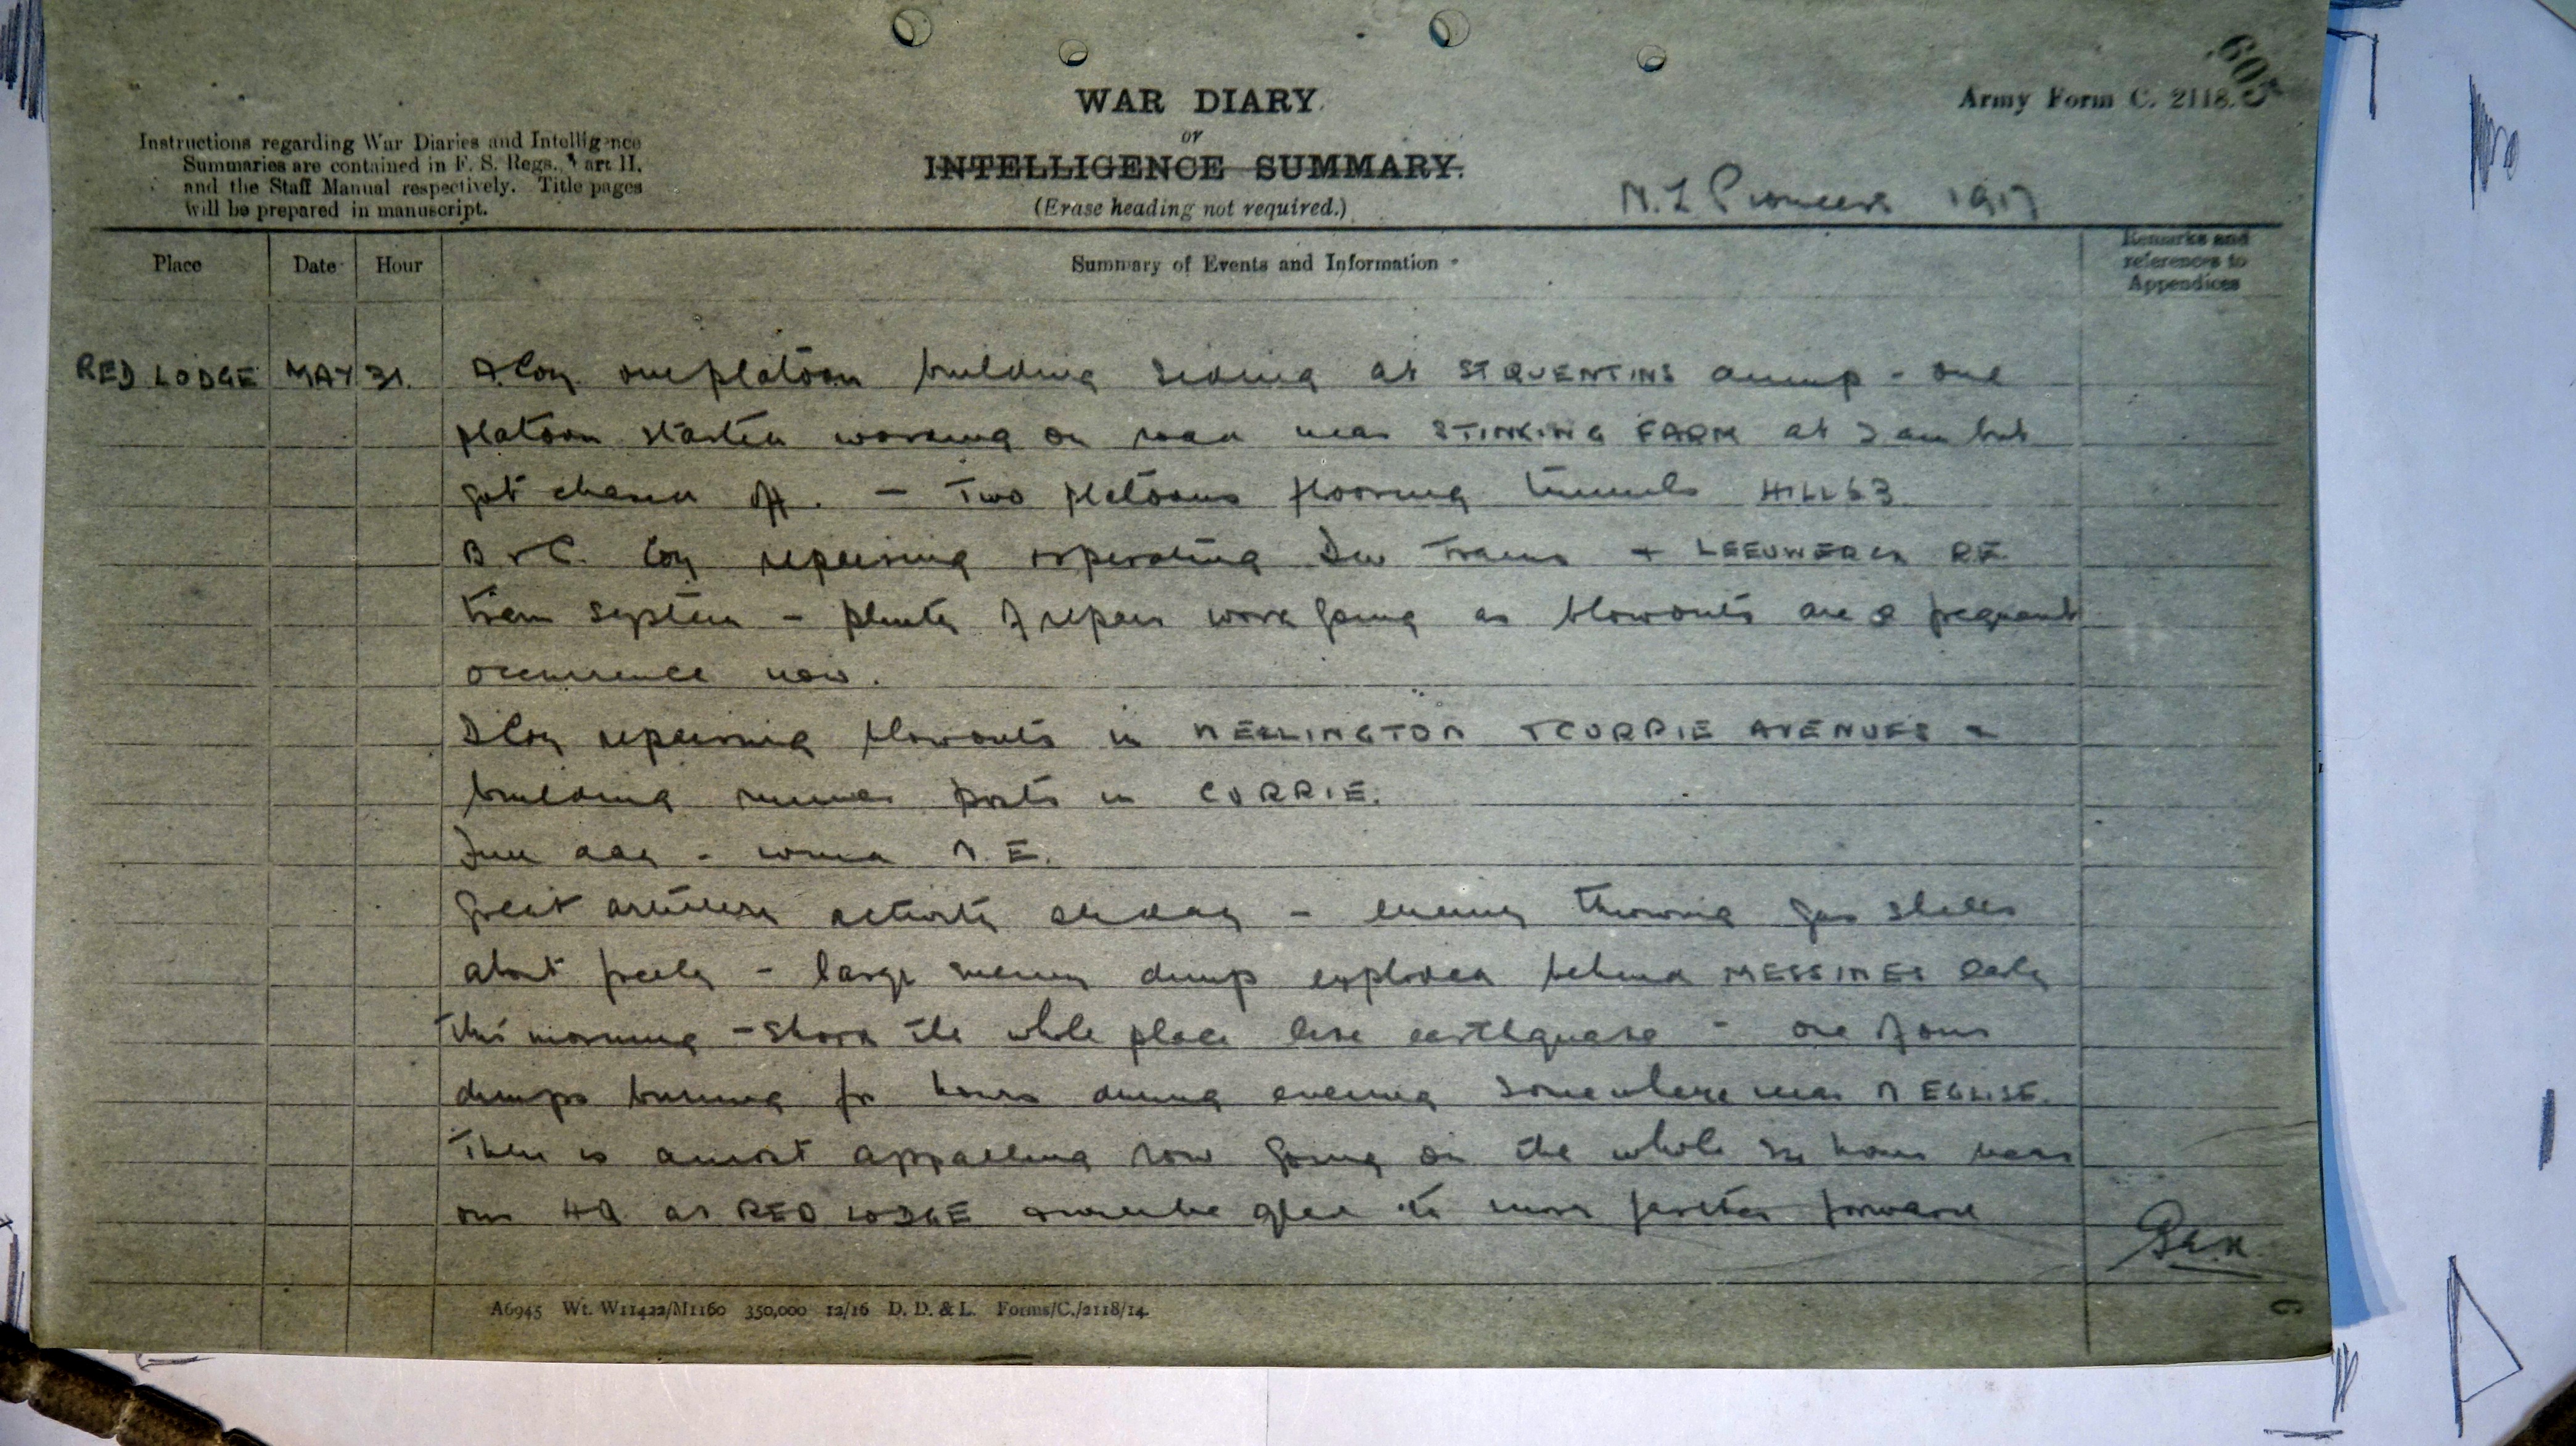 605
WAR DIARY
Army Form C. 2118.
or
INTELLIGENCE SUMMARY.
(Erase heading not required.)
Instructions regarding War Diaries and Intelligence
Summaries are contained in F. S. Regs., Part II.
and the Staff Manual respectively. Title pages
will be prepared in manuscript.
N.Z Pioneers 1917
Place Date Hour Summary of Events and Information Remarks and
references to
Appendices
RED LODGE MAY 31. A Coy. one platoon building siding at ST QUENTINS dump - one
platoon started working on road near STINKING FARM at 2 am but
got chased off. - Two platoons flooring tunnels HILL 63
B & C. Coy repairing & operating Div Trams + RE
tram system - plenty of repair work going as blowouts are a frequent
occurrence now.
D Coy repairing blowouts in WELLINGTON & CURRIE AVENUES &
building runner posts in CURRIE.
Fine day - wind N.E.
Great artillery activity all day - enemy throwing gas shells
about freely - large enemy dump exploded behind MESSINES early
this morning - shook the whole place like earthquake - one of our
dumps burning for hours during evening somewhere near N EGLISE.
There is a most appalling row going on the whole 24 hours near
our HQ at RED LODGE & will be glad to move further forward
A6945 Wt. W11422/M1160 350,000 12/16 D. D. & L. Forms/C./2118/14.